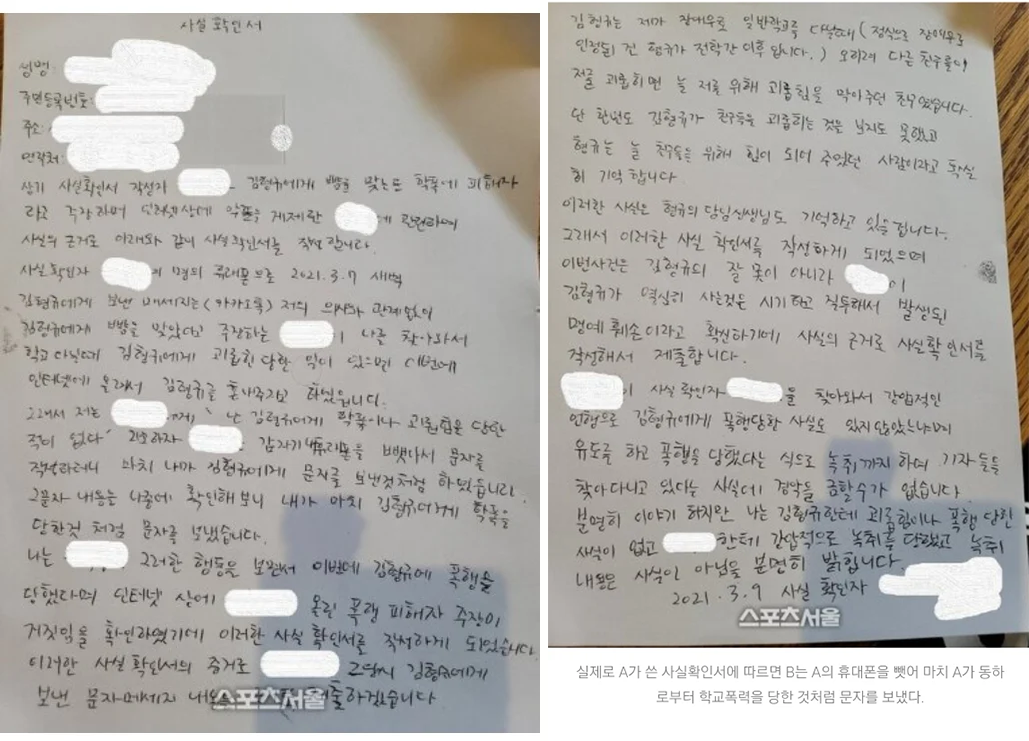 사실 확인서
성명:
주민등록번호:
주소:
연락처:
상기 사실확인서 작성자 김형규에게 뺨을 맞는등 학폭에 피해자
라고 주장하며 인터넷상에 악플을 게제란 에 관련하여
사실의 근거로 아래와 같이 사실확인서를 작성합니다.
사실확인자 의 명의 휴대폰으로 2021.3.7 새벽
김형규에게 보낸 메세지는(카카오톡) 저의 의사와 관계없이
김형규에게 뺨을 맞았다고 주장하는 이 나를 찾아와서
학교 다닐때 김형규에게 괴롭힘 당한 일이 있으면 이번에
인터넷에 올려서 김형규를 혼내주자고 하였습니다.
그래서 저는 에게 '난 김형규에게 학폭이나 괴롭힘을 당한
적이 없다' 라고하자 갑자기 휴대폰을 뺏아서 문자를
작성하더니 마치 내가 김형규에게 문자를 보낸것처럼 하였습니다.
그문자 내용을 나중에 확인해보니 내가 마치 김형규에게 학폭을
당한것 처럼 문자를 보냈습니다.
나는 그러한 행동을 보면서 이번에 김형규에 폭행을
당했다며 인터넷 상에 올린 폭행 피해자 주장이
거짓임을 확인하였기에 이러한 사실 확인서를 작성하게 되었습니다.
이러한 사실 확인서의 증거로 그당시 김형규에게
보낸 문자메세지 출하겠습니다
스포츠서울
김형규는 제가 장애우로 일반학교를 다닐때 (정식으로 장애우로
인정된 건 형규가 전학간 이후 입니다.) 오히려 다른 친구들이
저를 괴롭히면 늘 저를 위해 괴롭힘을 막아주던 친구였습니다.
단 한번도 김형규가 친구들을 괴롭히는 것을 보지도 못했고
형규는 늘 친구들을 위해 힘이 되어 주었던 사람이라고 확실
히 기억 합니다
이러한 사실은 형규의 담임선생님도 기억하고 있을겁니다.
그래서 이러한 사실 확인서를 작성하게 되었으며
이번사건은 김형규의 잘못이 아니라 이
김형규가 열심히 사는것을 시기하고 질투해서 발생된
명예훼손이라고 확신하기에 사실의 근거로 사실확인서를
작성해서 제출합니다.
이 사실 확인자 를 찾아와서 강압적인
언행으로 김형규에게 폭행당한 사실도 있지않았느냐며
유도를 하고 폭행을 당했다는 식으로 녹취까지 하며 기자들을
찾아다니고 있다는 사실에 경악을 금할수가 없습니다.
분명히 이야기 하지만 나는 김형규한테 괴롭힘이나 폭행 당한
사실이 없고 한테 강압적으로 녹취를 당했고 녹취
내용은 사실이 아님을 분명히 밝힙니다.
2021.3.9 사실 확인자
스포츠서울
실제로 A가 쓴 사실확인서에 따르면 B는 A의 휴대폰을 뺏어 마치 A가 동하
로부터 학교폭력을 당한 것처럼 문자를 보냈다.